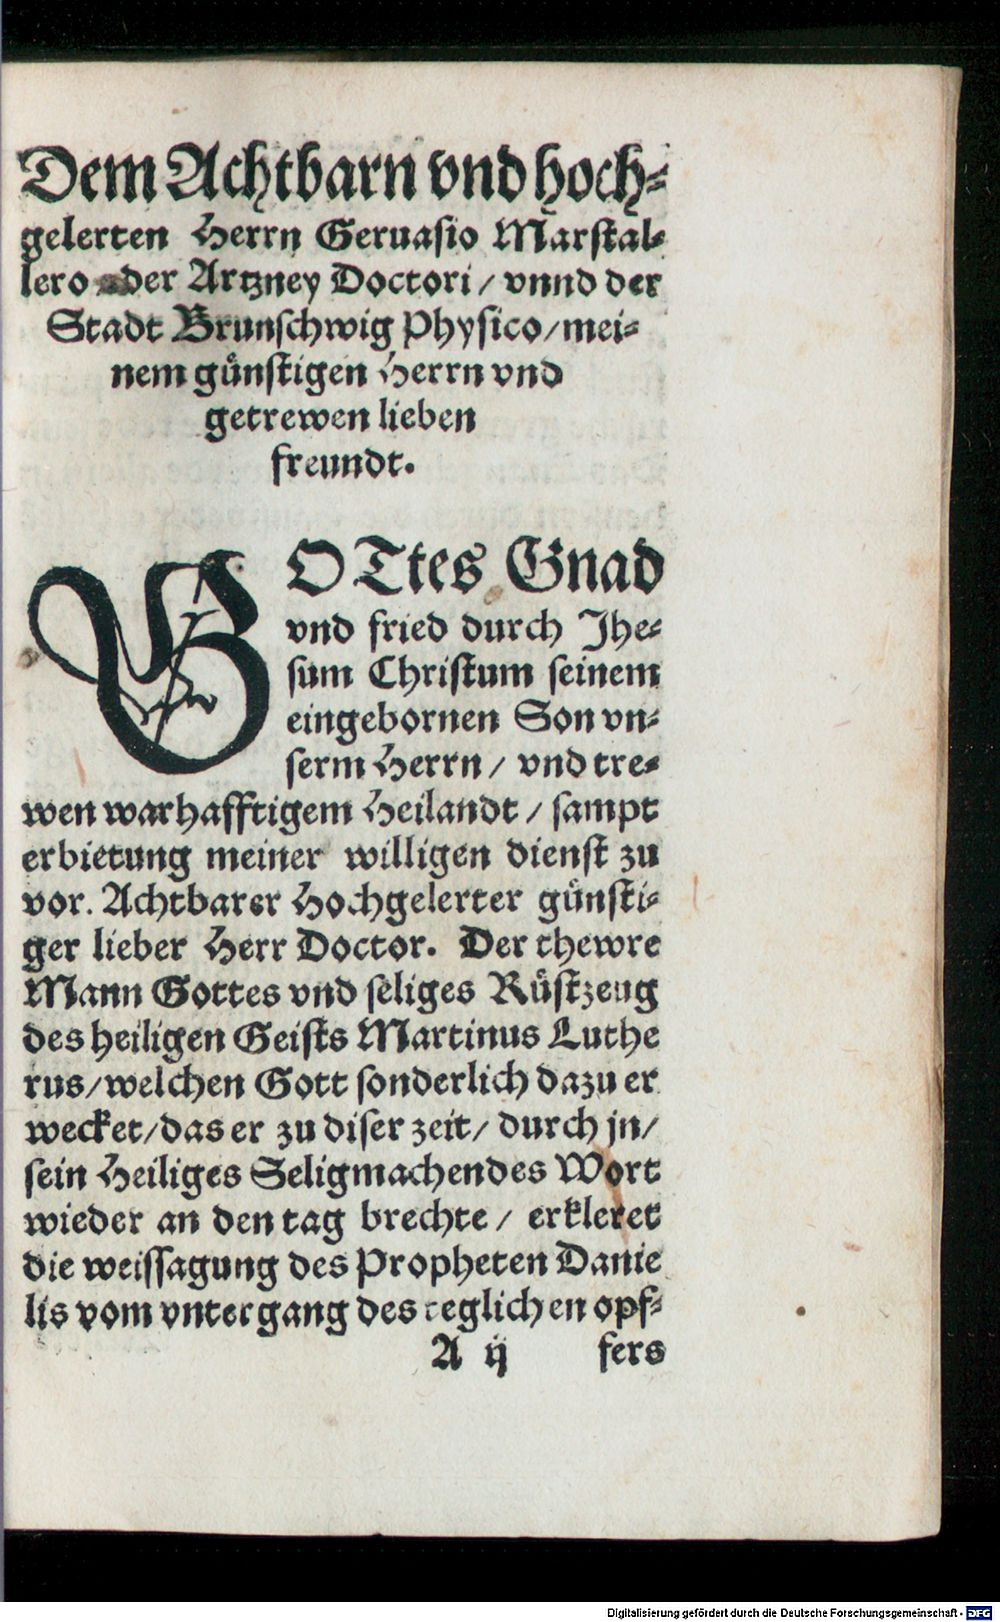 Dem Achtbarn vnd hoch-
gelerten Herrn Geruasio Marstal-
lero der Artzney Doctori / vnnd der
Stadt Brunschwig Physico / mei-
nem günstigen Herrn vnd
getrewen lieben
freundt.
GOTtes Gnad
vnd fried durch Jhe-
sum Christum seinem
eingebornen Son vn-
serm Herrn / vnd tre-
wen warhafftigem Heilandt / sampt
erbietung meiner willigen dienst zu
vor. Achtbarer Hochgelerter günsti-
ger lieber Herr Doctor. Der thewre
Mann Gottes vnd seliges Rüstzeug
des heiligen Geists Martinus Luthe
rus / welchen Gott sonderlich dazu er
wecket / das er zu diser zeit / durch jn /
sein Heiliges Seligmachendes Wort
wieder an den tag brechte / erkleret
die weissagung des Propheten Danie
lis vom vntergang des teglichen opf-
A ij fers
Digitalisierung gefördert durch die Deutsche Forschungsgemeinschaft - DFG